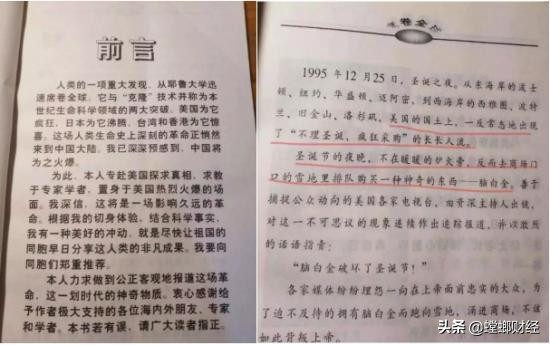 前言
人类的一项重大发现,从耶鲁大学迅
速席卷全球,它与“克隆”技术并称为本
世纪生命科学领域的两大突破。美国为它
疯狂,日本为它沸腾,台湾和香港为它惊
喜,这场人类生命史上深刻的革命正悄然
来到中国大陆。我已深深预感到,中国将
为之火爆。
为此,本人专赴美国探求真相,求教
于专家学者,置身于美国热烈火爆的场
面。我深信,这将是一场影响久远的革
命。根据我的切身体验,结合科学事实,
我有一种美好的冲动,就是尽快让祖国的
同胞早日分享这人类的非凡成果。我要向
同胞们郑重推荐。
本人力求做到公正客观地报道这场革
命,这一划时代的神奇物质。衷心感谢给
予作者极大支持的各位海内外朋友、专家
和学者。本书若有误,请广大读者指正。
席卷全球
1995年12月25日,圣诞之夜。从东海岸的波士
顿、纽约、华盛顿、迈阿密,到西海岸的西雅图、波特
兰、旧金山、洛杉矶,美国的国土上,一反常态地出现
了“不理圣诞,疯狂采购”的长长人流。
圣诞节的夜晚,不在暖暖的炉火旁,反而去商场门
口的雪地里排队购买一种神奇的东西——脑白金。善于
捕捉公众动向的美国各家电视台,由资深主持人出镜,
对这一不可思议的现象连续作出追踪报道,并以激烈
的话语指责:
“脑白金破坏了圣诞节!”
各家媒体纷纷埋怨一向在上帝面前忠实的大众,为
了迫不及待的拥有脑白金而跑向雪地,涌进商场,不该
如此背叛上帝。
头条 @螳螂财经